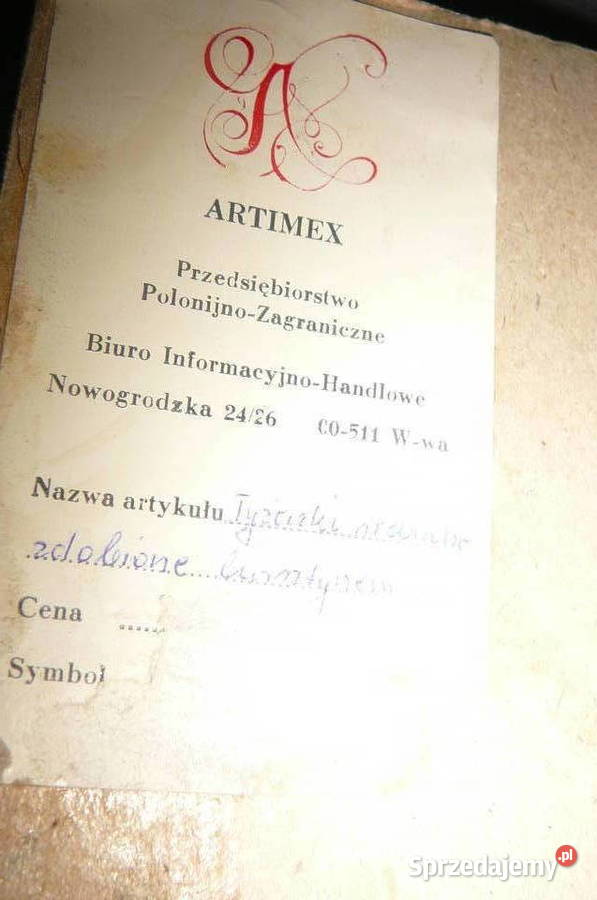 A
ARTIMEX
Przedsiębiorstwo
Polonijno-Zagraniczne
Biuro Informacyjno-Handlowe
Nowogrodzka 24/26 00-511 W-wa
Nazwa artykułu Łyżeczki
zdobione bursztynem
Cena
Symbol
Sprzedajemy.pl